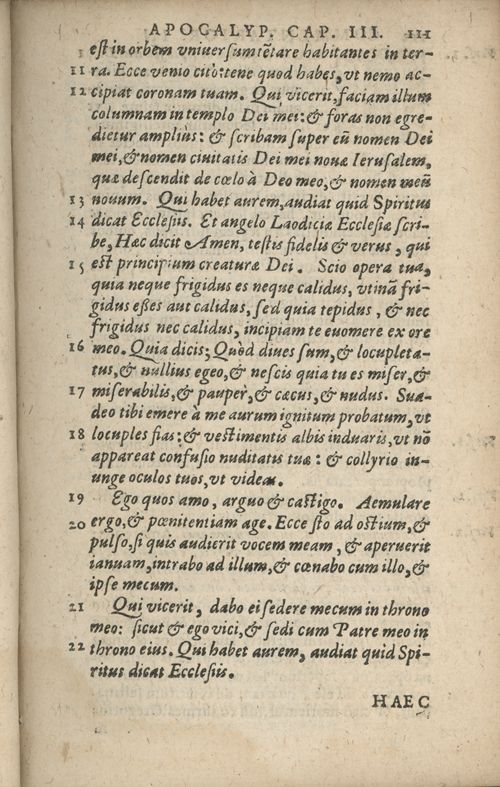 APOCALYP. CAP. III. 111
est in orbem vniuersum tẽtare habitantes in ter-
11 ra. Ecce venio citò: tene quod habes, vt nemo ac-
12 cipiat coronam tuam. Qui vicerit, faciam illum
columnam in templo Dei mei: & foras non egre-
dietur ampliùs: & scribam super eũ nomen Dei
mei, & nomen ciuitatis Dei mei nouæ Ierusalem,
quæ descendit de cœlo à Deo meo, & nomen meũ
13 nouum. Qui habet aurem, audiat quid Spiritus
14 dicat Ecclesiis. Et angelo Laodiciæ Ecclesiæ scri-
be, Hæc dicit Amen, testis fidelis & verus, qui
15 est principium creaturæ Dei. Scio opera tua,
quia neque frigidus es neque calidus, vtinã fri-
gidus esses aut calidus, sed quia tepidus, & nec
frigidus nec calidus, incipiam te euomere ex ore
16 meo. Quia dicis; Quòd diues sum, & locupleta-
tus, & nullius egeo, & nescis quia tu es miser, &
17 miserabilis, & pauper, & cæcus, & nudus. Sua-
deo tibi emere à me aurum ignitum probatum, vt
18 locuples fias: & vestimentis albis induaris, vt nõ
appareat confusio nuditatis tuæ: & collyrio in-
unge oculos tuos, vt videas.
19 Ego quos amo, arguo & castigo. Aemulare
20 ergo, & pœnitentiam age. Ecce sto ad ostium, &
pulso. si quis audierit vocem meam, & aperuerit
ianuam, intrabo ad illum, & cœnabo cum illo, &
ipse mecum.
21 Qui vicerit, dabo ei sedere mecum in throno
meo: sicut & ego vici, & sedi cum Patre meo in
22 throno eius. Qui habet aurem, audiat quid Spi-
ritus dicat Ecclesiis.
HAEC